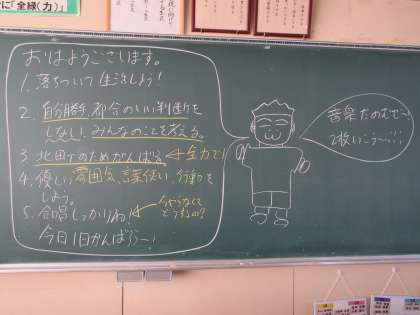 おはようございます。
1. 落ちついて生活しよう!
2. 自分勝手、都合のいい判断を
しない。みんなのことを考える。
3. 北田丁のためがんばる ← 全力で!
4. 優しい雰囲気、言葉使い、行動を
しよう。
5. 合唱しっかりね! ← 今やらなくて
どうするの?
今日1日がんばろうー!
音楽たのむぜ〜!
2枚いこう〜!!!